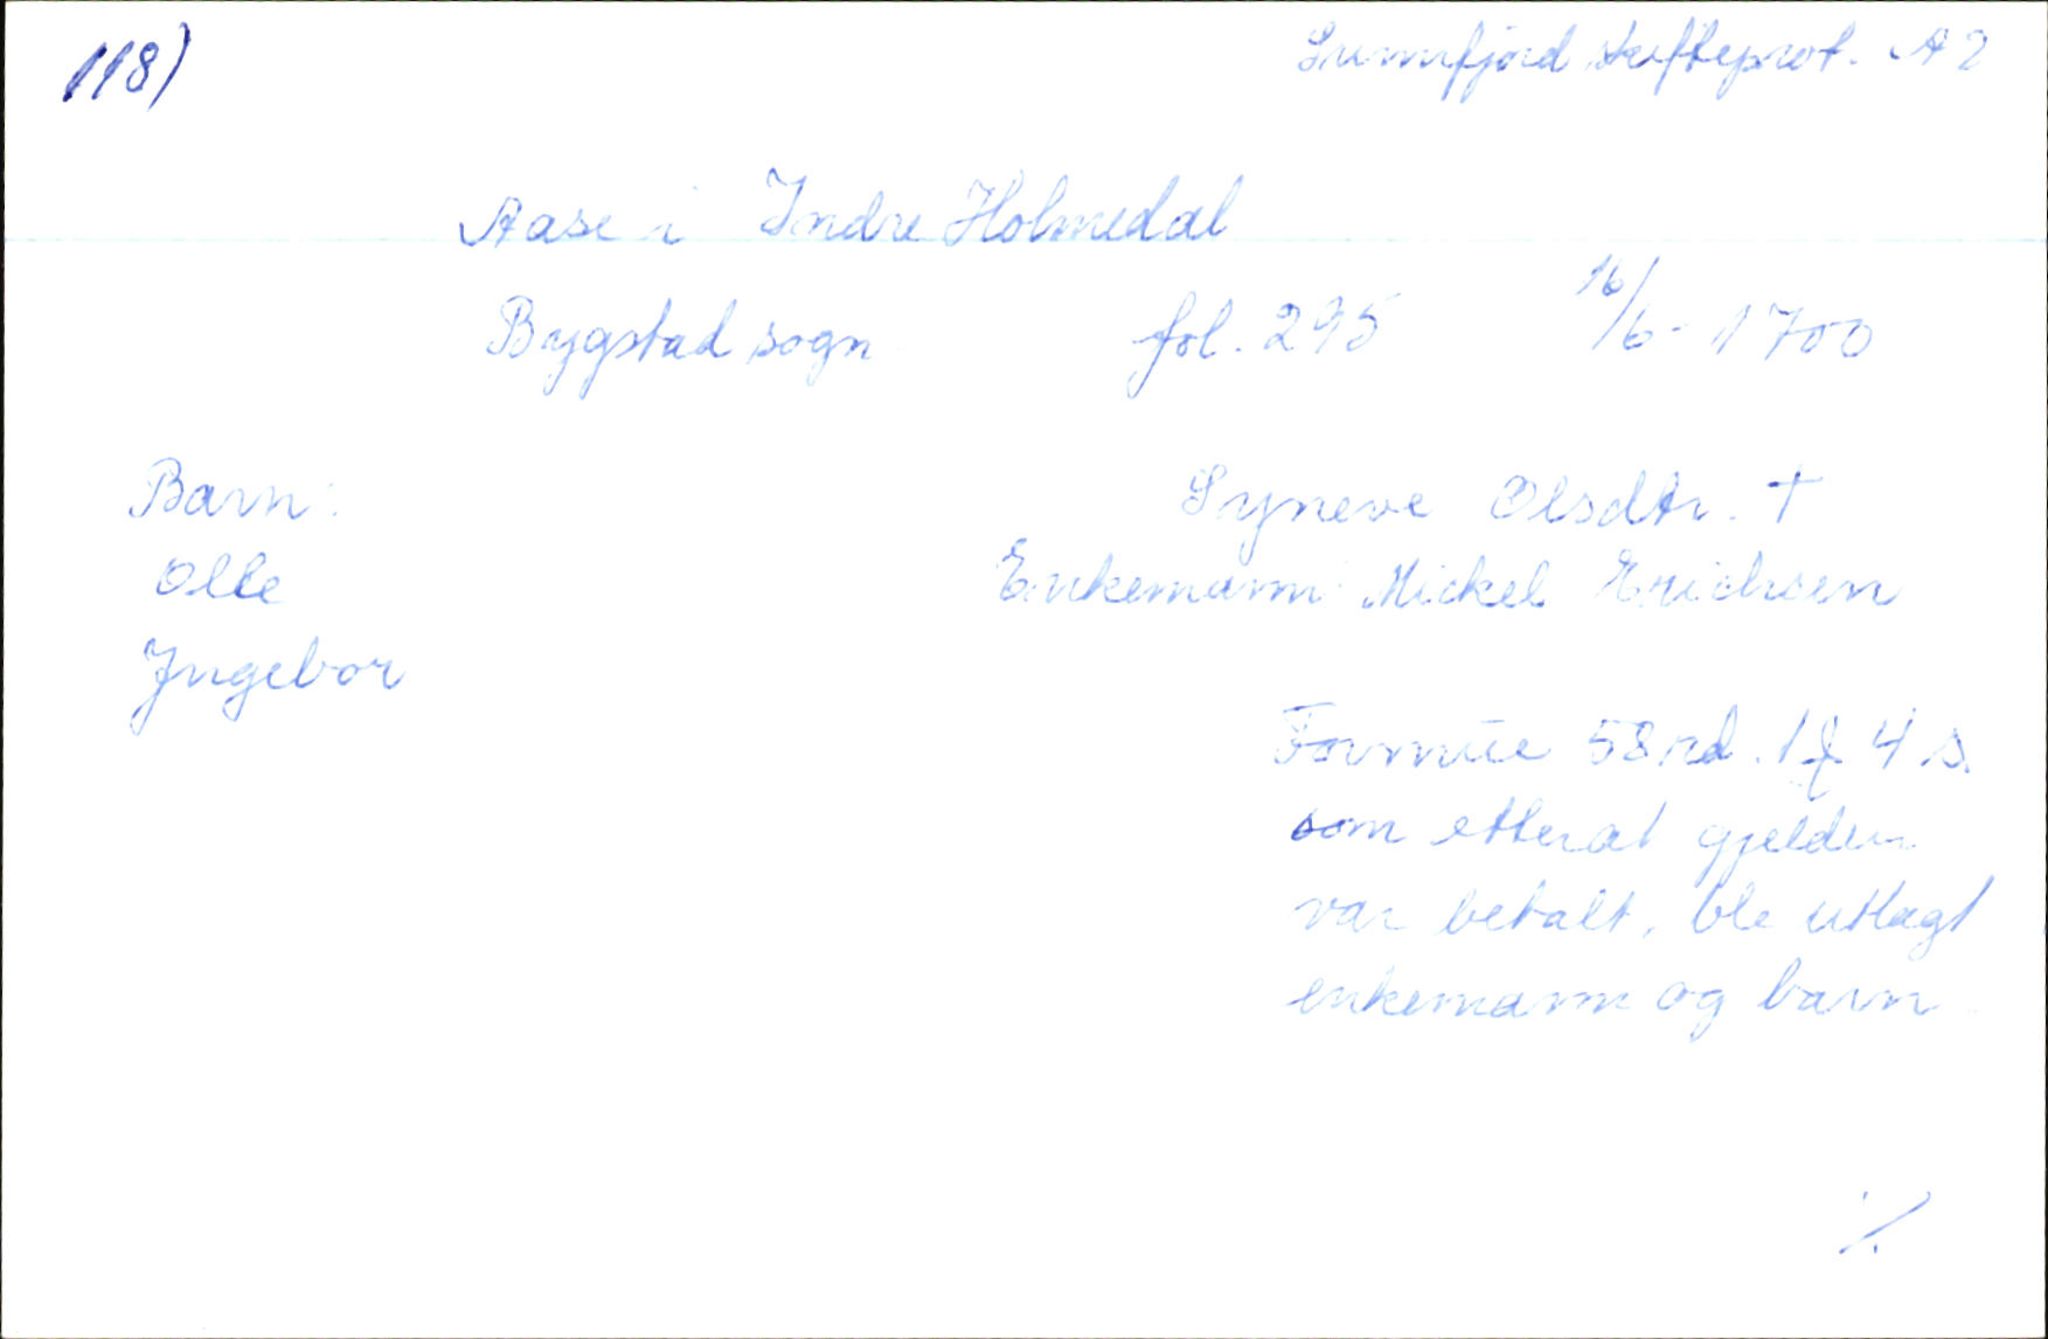 118)
Sunnfjord skifteprot. A 2
Aase i Indre Holmedal
Bygstad sogn fol. 295 16/6- 1700
Barn:
Olle
Ingebor
Syneve Olsdtr. †
Enkemann: Mickel Erichsen
Formue 58 rd. 1 4 s.
som etterat gjelden
var betalt, ble utlagt
enkemann og barn
./.